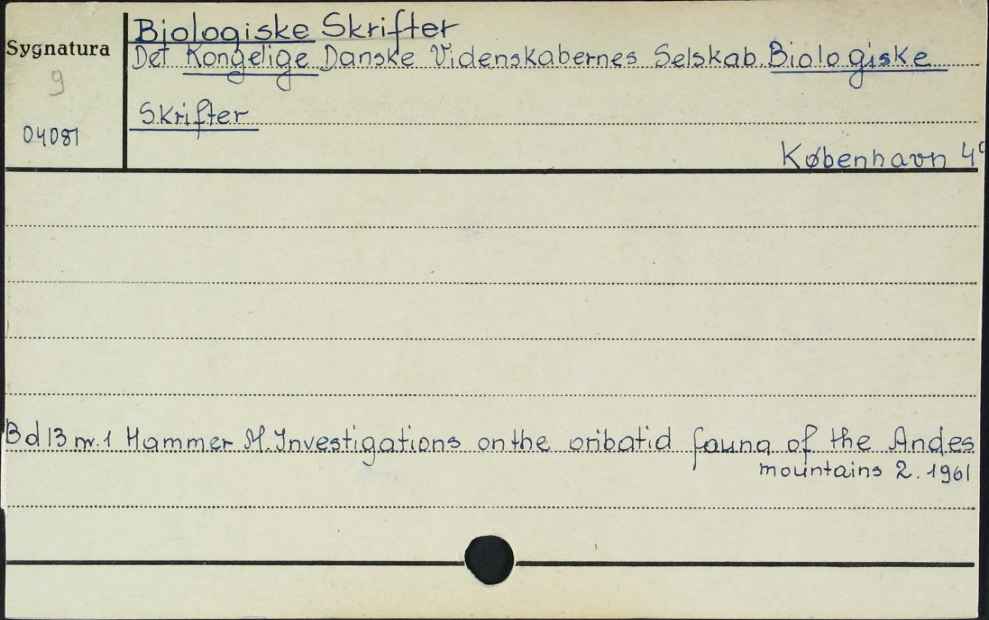 Biologiske Skrifter
Sygnatura
Det Kongelige Danske Videnskabernes Selskab. Biologiske
9
Skrifter
04081
København 4°
Bd 13 nr. 1 Hammer M. Investigations on the oribatid fauna of the Andes
mountains 2. 1961